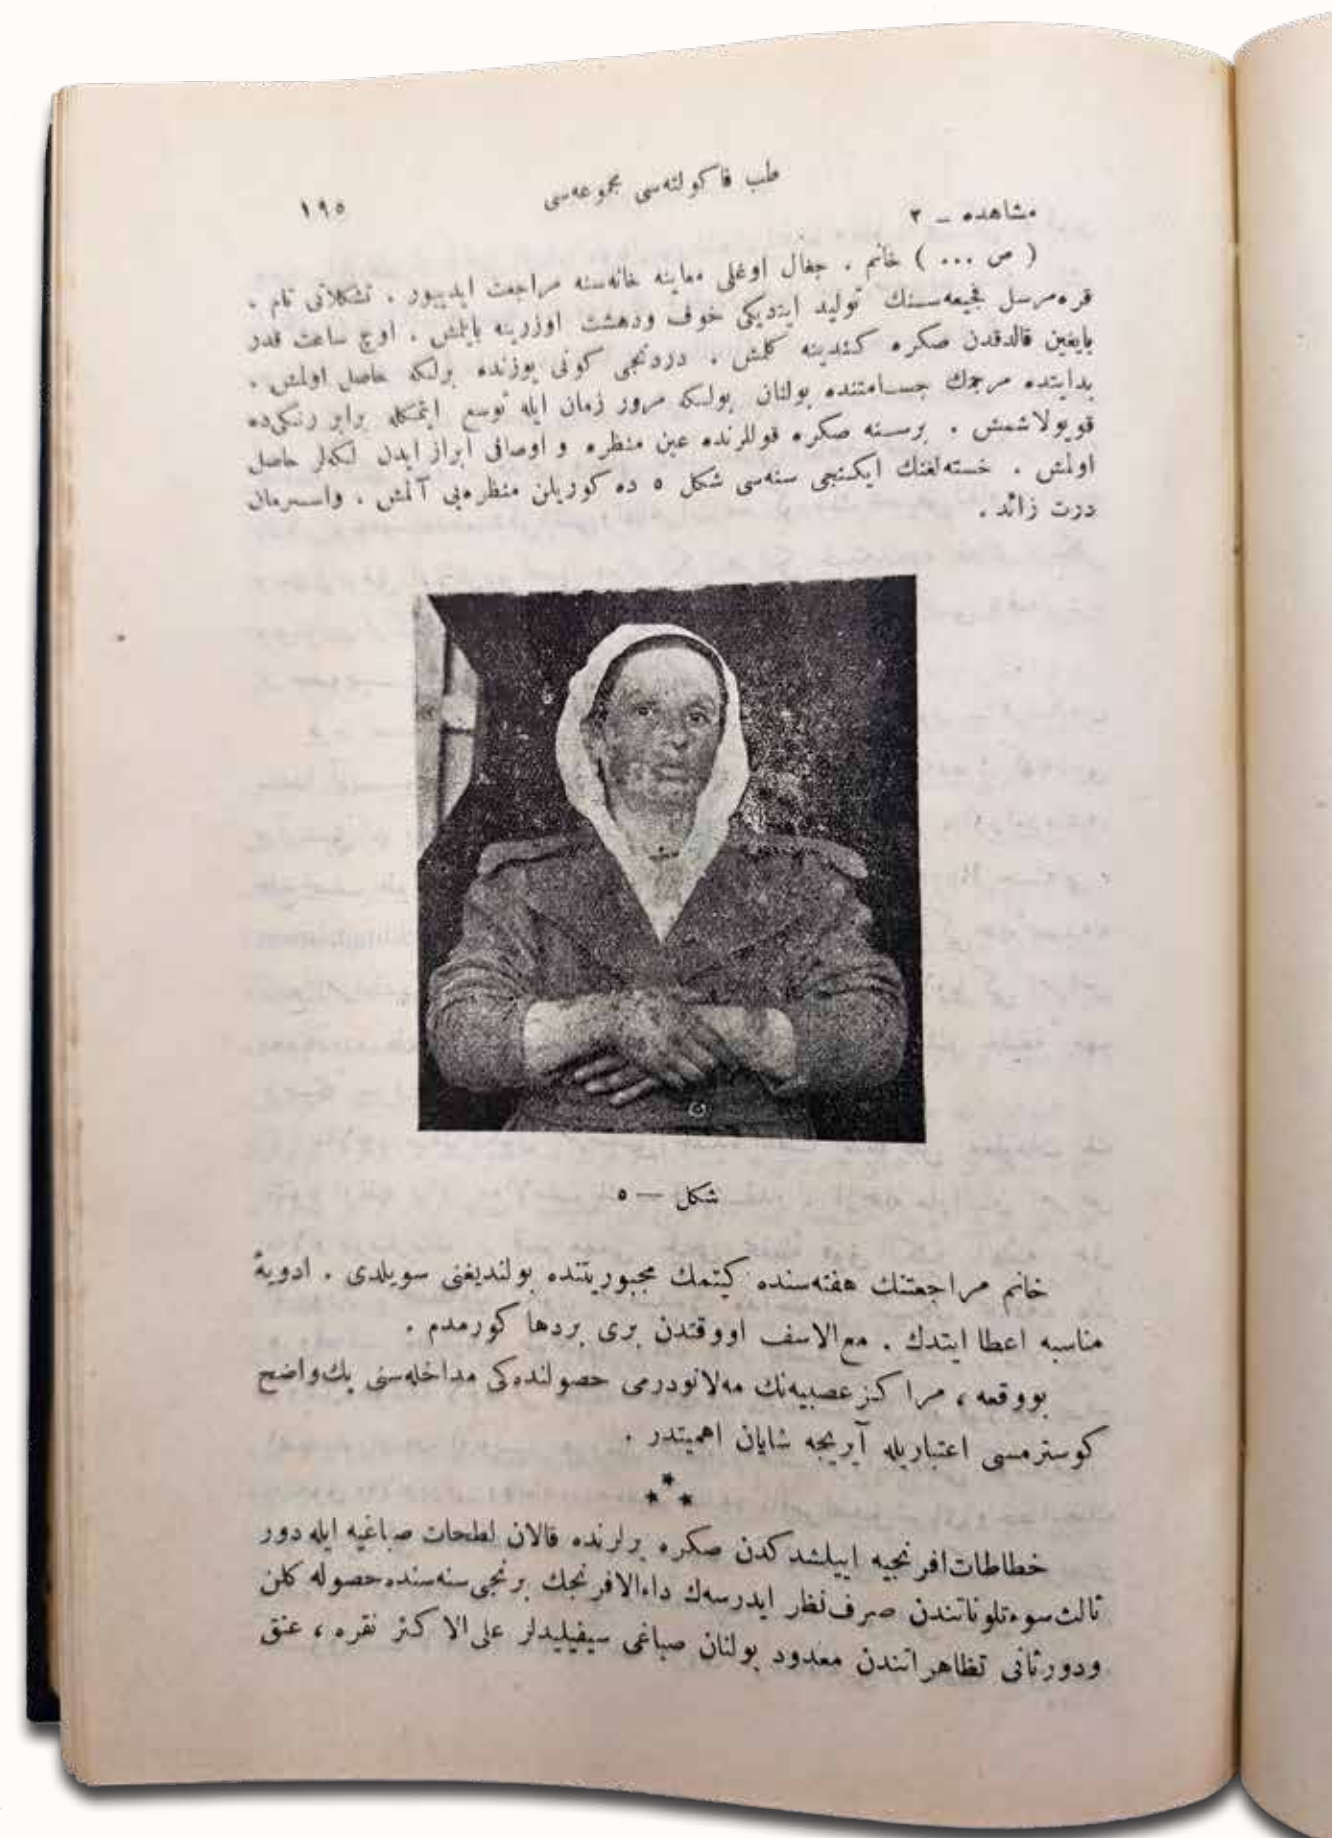 طب فاكولته‌سی مجموعه‌سی
١٩٥
مشاهده ـ ٢
( ص ... ) خانم . جغال اوغلی معاینه خانه‌سنه مراجعت ایدییور . تشكلاتی تام .
قره‌مرسل فجیعه‌سنك تولید ایتدیكی خوف ودهشت اوزرینه بایلمش . اوچ ساعت قدر
بایغین قالدقدن صكره كندینه كلمش . دردنجی كونی یوزنده برلكه حاصل اولمش .
بدایتده مرجمك جسامتنده بولنان بولكه مرور زمان ایله توسع ایتمكله برابر رنكی‌ده
قویولاشمش . برسنه صكره قوللرنده عین منظره و اوصافی ابراز ایدن لكه‌لر حاصل
اولمش . خسته‌لغنك ایكنجی سنه‌سی شكل ٥ ده كوریلن منظره‌یی آلمش . واسرمان
درت زائد .
شكل — ٥
خانم مراجعتنك هفته‌سنده كیتمك مجبوریتنده بولندیغنی سویلدی . ادویهٔ
مناسبه اعطا ایتدك . مع‌الاسف اووقتدن بری بردها كورمدم .
بووقعه ، مراكز عصبیه‌نك مه‌لانودرمی حصولنده‌كی مداخله‌سنی پك‌واضح
كوسترمسی اعتباریله آیریجه شایان اهمیتدر .
***
خطاطات‌افرنجیه اییلشدكدن صكره یرلرنده قالان لطحات صباغیه ایله دور
ثالث‌سوءتلوناتندن صرف‌نظر ایدرسه‌ك داءالافرنجك برنجی‌سنه‌سنده‌حصوله كلن
ودورثانی تظاهراتندن معدود بولنان صباغی سیفیلیدلر علی‌الاكثر نقره ، عنق